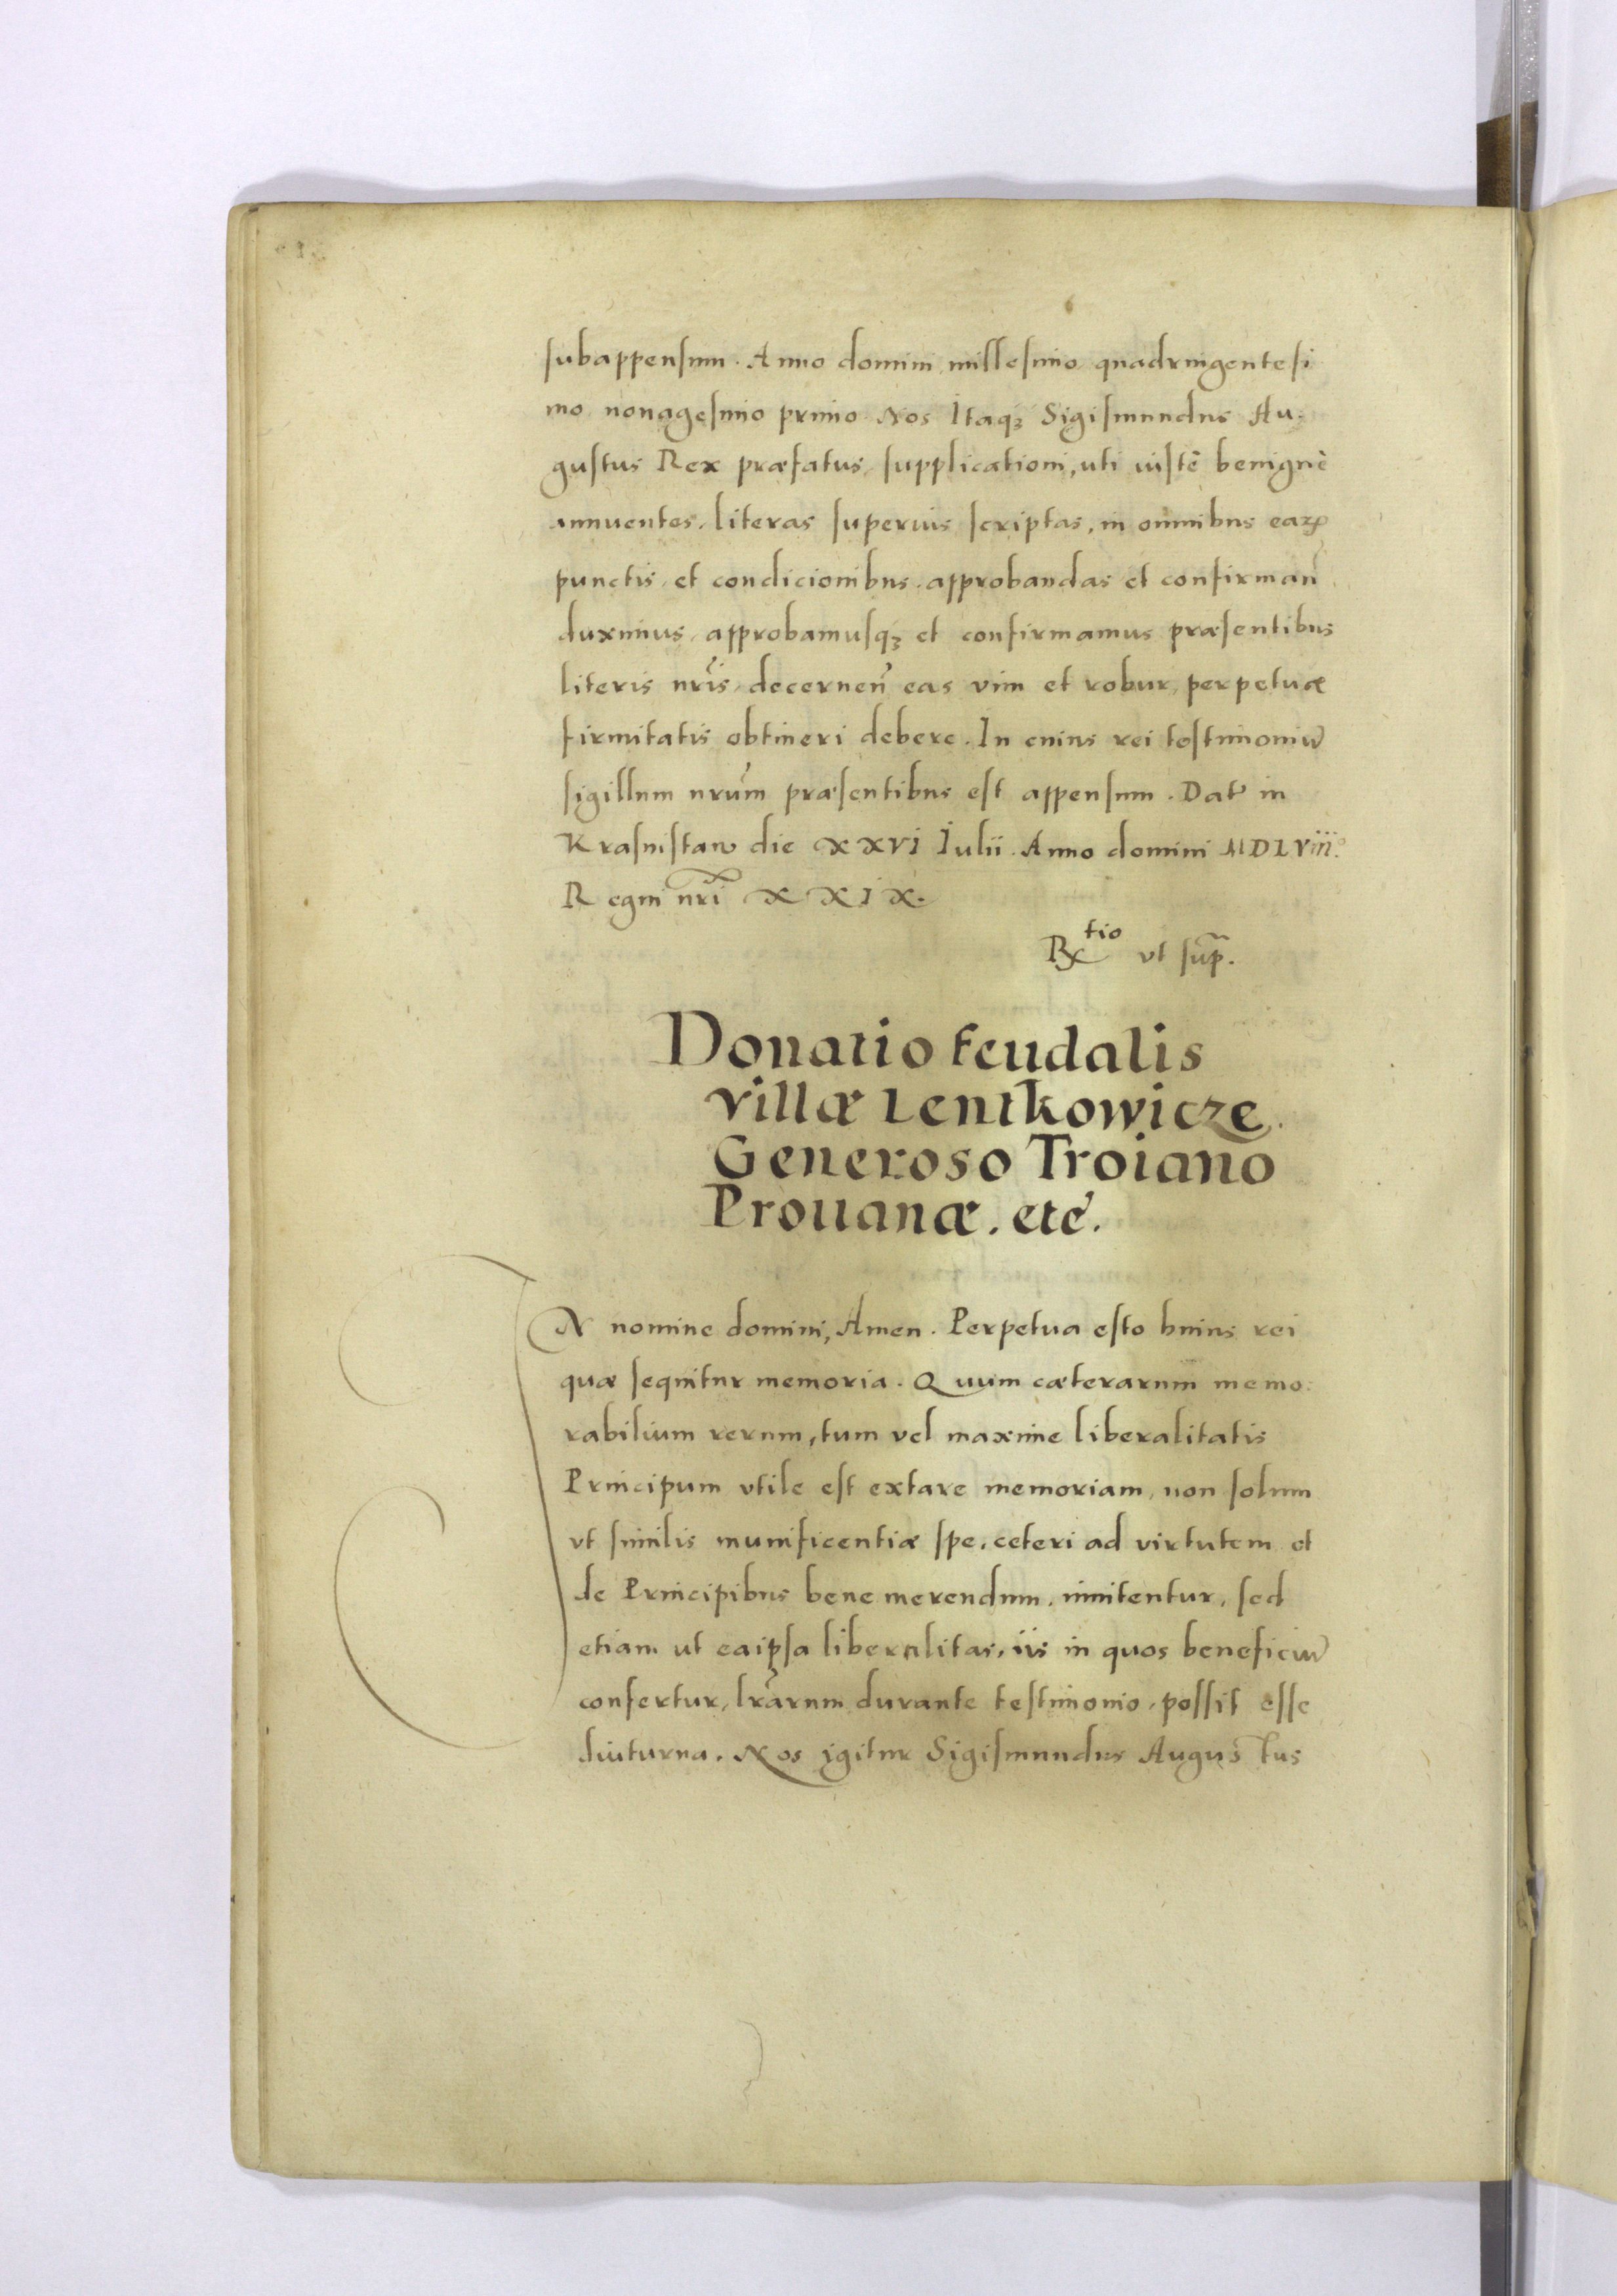 subappensum. Anno domini millesimo quadringentesi
mo nonagesimo primo. Nos Itaqꝫ Sigismundus Au-
gustus Rex præfatus, supplicationi, uti iustè benignè
annuentes, literas superius scriptas, in omnibus earꝝ
punctis, et condicionibus, approbandas et confirman̄
duximus, approbamusqꝫ et confirmamus præsentibus
literis nr̃is, decernen̄ eas vim et robur, perpetuæ
firmitatis obtineri debere. In cuius rei testimoniū
sigillum nrũm præsentibus est appensum. Dat̃ in
Krasnistaw die XXVI Iulii. Anno domini MDLVIII.°
Regni nr̃i XXIX.
Rx^tio vt sup̃.
Donatio feudalis
villæ Lentkowicze
Generoso Troiano
Prouanæ. etc̃.
IN nomine domini, Amen. Perpetua esto huius rei
quæ sequitur memoria. Quum cæterarum memo-
rabilium rerum, tum vel maxime liberalitatis
Principum vtile est extare memoriam, non solum
vt similis munificentiæ spe, ceteri ad virtutem et
de Principibus bene merendum, innitentur, sed
etiam ut eaipsa liberalitas, iis in quos beneficiū
confertur, lr̃arum durante testimonio, possit esse
diuturna. Nos igitur Sigismundus Augustus